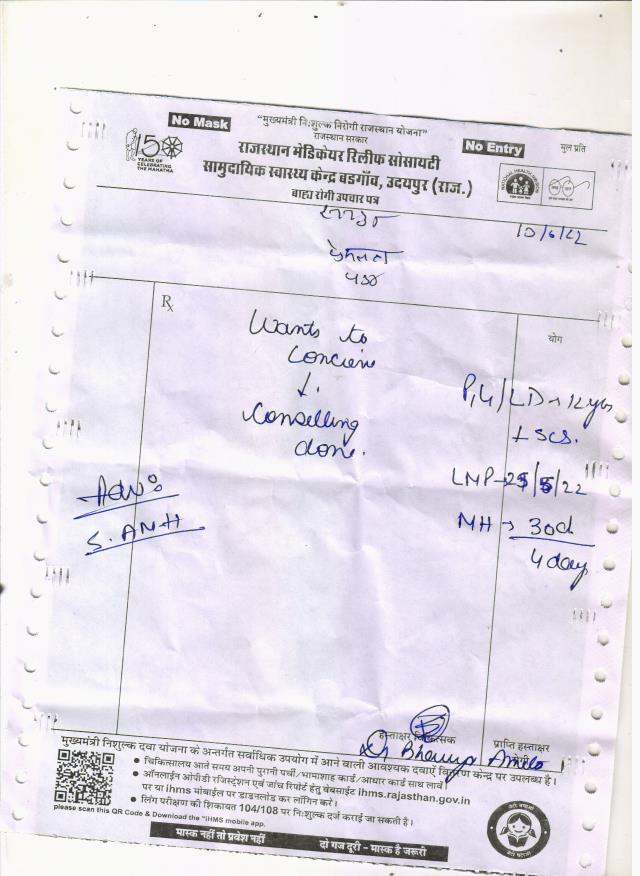 No Mask
"मुख्यमंत्री नि:शुल्क निरोगी राजस्थान योजना"
राजस्थान सरकार
No Entry
मूल प्रति
150
YEARS OF
CELEBRATING
THE MAHATMA
राजस्थान मेडिकेयर रिलीफ सोसायटी
सामुदायिक स्वास्थ्य केन्द्र बडगाँव, उदयपुर (राज.)
बाह्य रोगी उपचार पत्र
10/6/22
Rx
योग
Wants to
Concieve
↓.
Conselling
done.
P1L1/LD → 12 yrs
LSCS.
LMP → 25/5/22
MH → 30d
4 day
Adv:
S. AMH
हस्ताक्षर चिकित्सक
प्राप्ति हस्ताक्षर
Dr Bhavya
मुख्यमंत्री निशुल्क दवा योजना के अन्तर्गत सर्वाधिक उपयोग में आने वाली आवश्यक दवाऐं वितरण केन्द्र पर उपलब्ध है।
• चिकित्सालय आते समय अपनी पुरानी पर्ची/भामाशाह कार्ड/आधार कार्ड साथ लावें
• ऑनलाईन ओपीडी रजिस्ट्रेशन एवं जांच रिपोर्ट हेतु वेबसाईट ihms.rajasthan.gov.in
पर या ihms मोबाईल पर डाउनलोड कर लॉगिन करे।
• लिंग परीक्षण की शिकायत 104/108 पर नि:शुल्क दर्ज कराई जा सकती है।
please scan this QR Code & Download the "iHMS mobile app.
मास्क नहीं तो प्रवेश नहीं
दो गज दूरी - मास्क है जरूरी